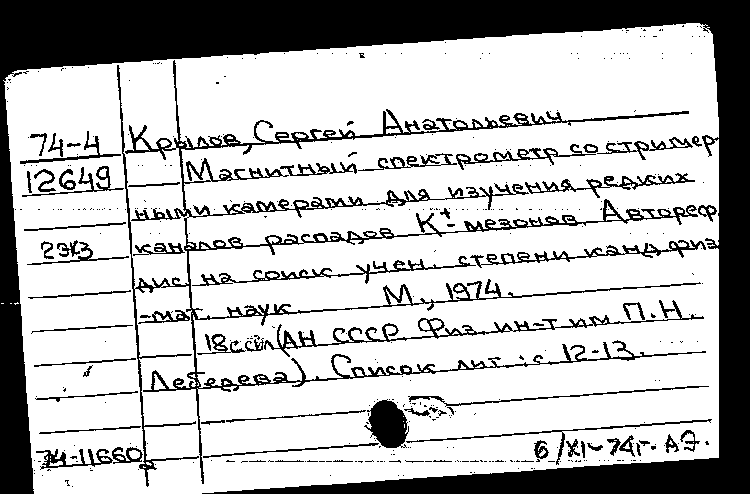 74-4 Крылов, Сергей Анатольевич.
12649 Магнитный спектрометр со стример-
ными камерами для изучения редких
2экз каналов распадов К⁺-мезонов. Автореф.
дис. на соиск. учен. степени канд. физ.
-мат. наук. М., 1974.
18с. (АН СССР. Физ. ин-т им. П.Н.
Лебедева). Список лит.: с. 12-13.
74-11660
6/XI-74г. АЭ.